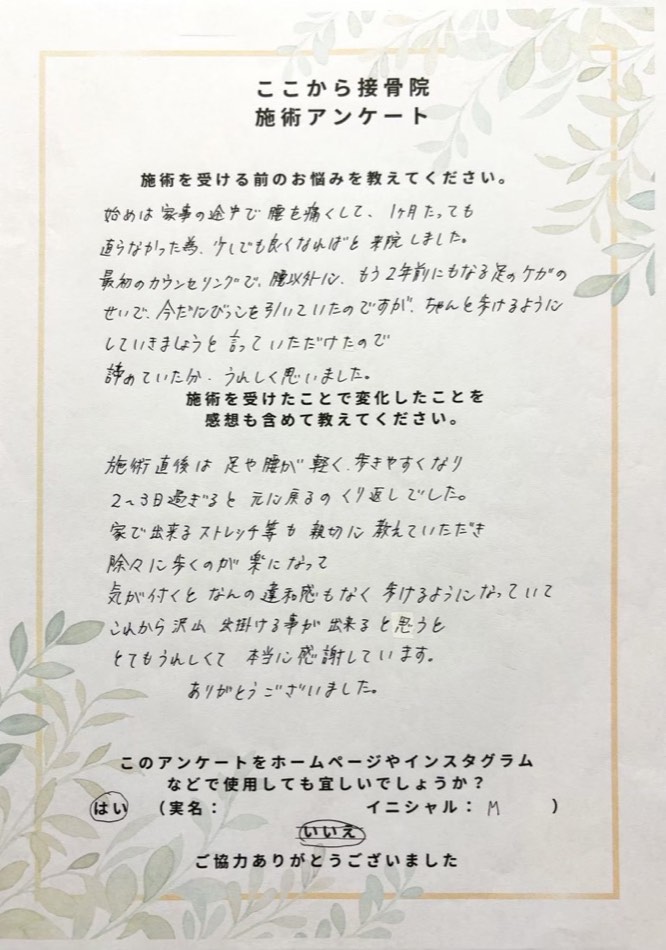 ここから接骨院
施術アンケート
施術を受ける前のお悩みを教えてください。
始めは家事の途中で腰を痛くして、1ヶ月たっても
直らなかった為、少しでも良くなればと来院しました。
最初のカウンセリングで、腰以外に、もう2年前にもなる足のケガの
せいで、今だにびっこを引いていたのですが、ちゃんと歩けるように
していきましょうと言っていただけたので
諦めていた分、うれしく思いました。
施術を受けたことで変化したことを
感想も含めて教えてください。
施術直後は足や腰が軽く、歩きやすくなり
2〜3日過ぎると元に戻るのくり返しでした。
家で出来るストレッチ等も親切に教えていただき
除々に歩くのが楽になって
気が付くとなんの違和感もなく歩けるようになっていて
これから沢山出掛ける事が出来ると思うと
とてもうれしくて本当に感謝しています。
ありがとうございました。
このアンケートをホームページやインスタグラム
などで使用しても宜しいでしょうか？
はい （実名： イニシャル：M ）
いいえ
ご協力ありがとうございました